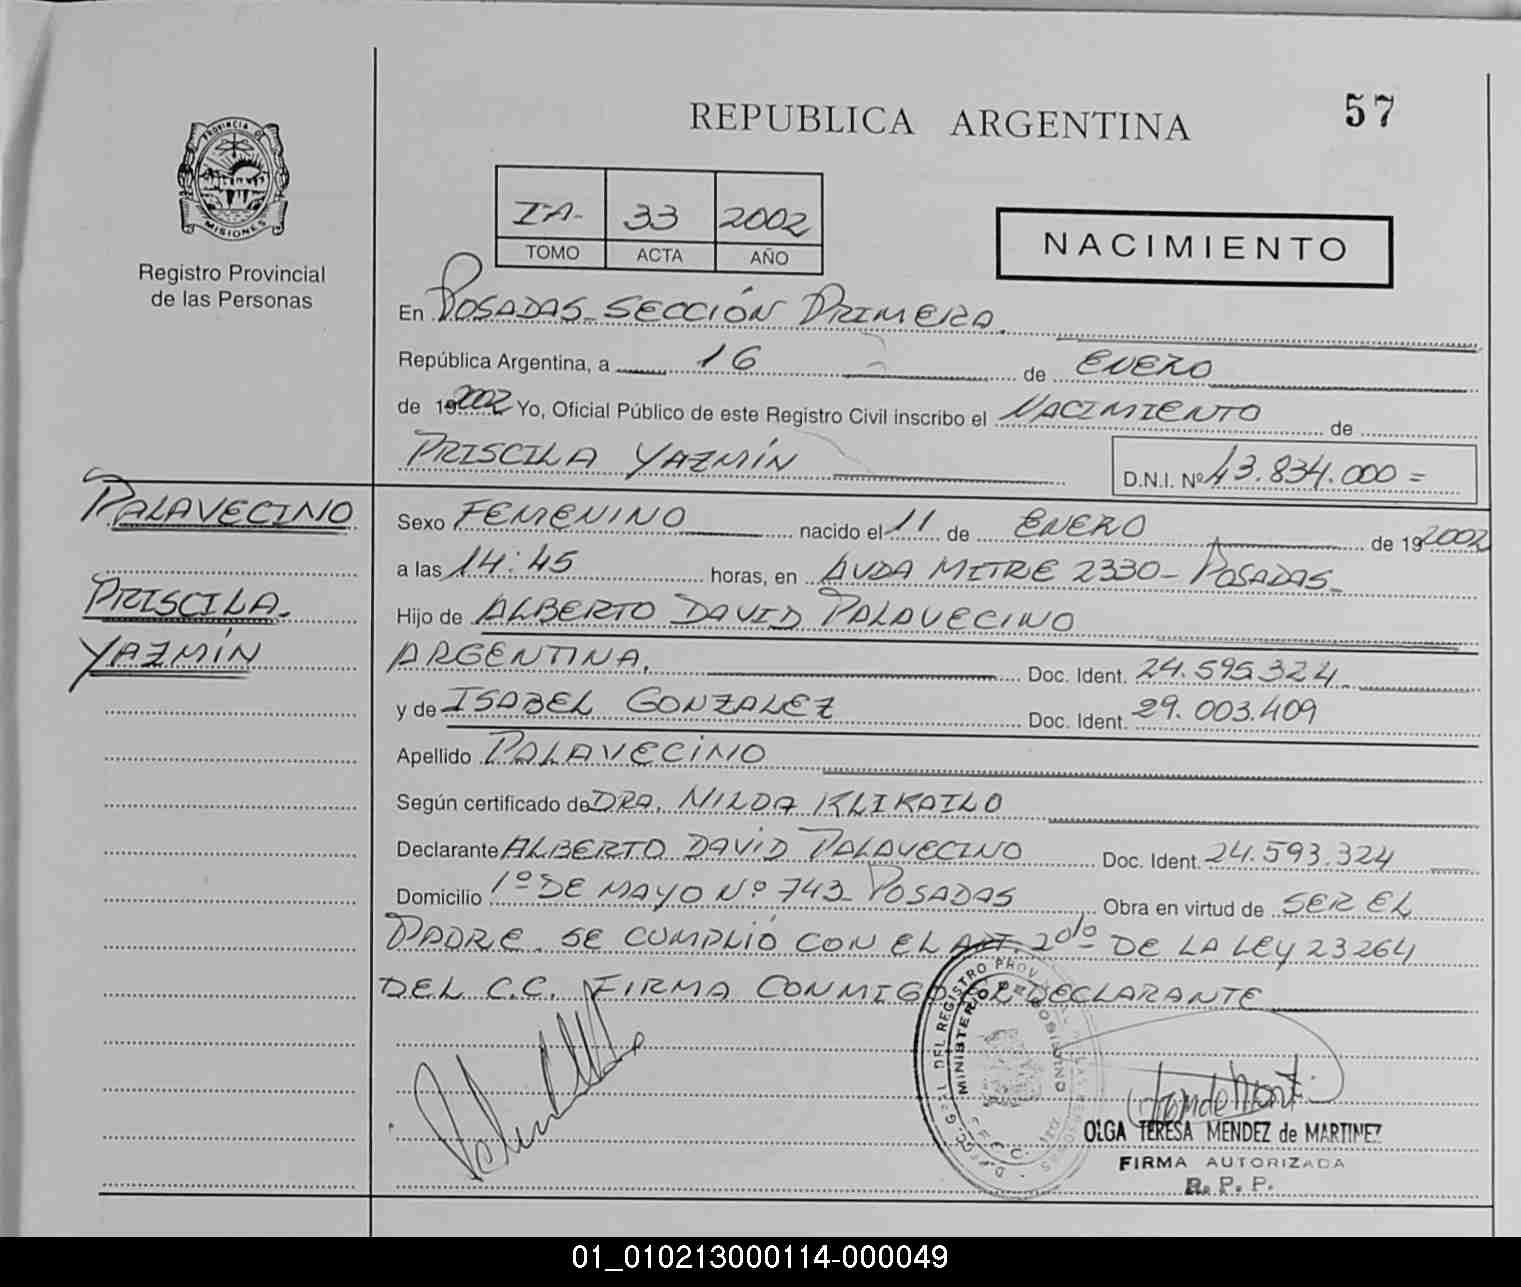 57
REPUBLICA ARGENTINA
PROVINCIA DE
MISIONES
Registro Provincial
de las Personas
IA- 33 2002
TOMO ACTA AÑO
NACIMIENTO
En POSADAS_SECCIÓN PRIMERA.
República Argentina, a 16 de ENERO
de 19 2002 Yo, Oficial Público de este Registro Civil inscribo el NACIMIENTO de
PRISCILA YAZMÍN
D.N.I. Nº 43.834.000 =
PALAVECINO
PRISCILA.
YAZMÍN
Sexo FEMENINO nacido el 11 de ENERO de 19 2002
a las 14:45 horas, en AVDA MITRE 2330_ POSADAS_
Hijo de ALBERTO DAVID PALAVECINO
ARGENTINA. Doc. Ident. 24.595.324
y de ISABEL GONZALEZ Doc. Ident. 29.003.409
Apellido PALAVECINO
Según certificado de DRA. NILDA KLIKAILO
Declarante ALBERTO DAVID PALAVECINO Doc. Ident. 24.593.324
Domicilio 1º DE MAYO Nº 743_ POSADAS Obra en virtud de SER EL
PADRE. SE CUMPLIÓ CON EL ART. 2º DE LA LEY 23264
DEL C.C. FIRMA CONMIGO EL DECLARANTE
DEL REGISTRO PROV
MINISTERIO DE GOBIERNO
OLGA TERESA MENDEZ de MARTINEZ
FIRMA AUTORIZADA
R. P. P.
01_010213000114-000049